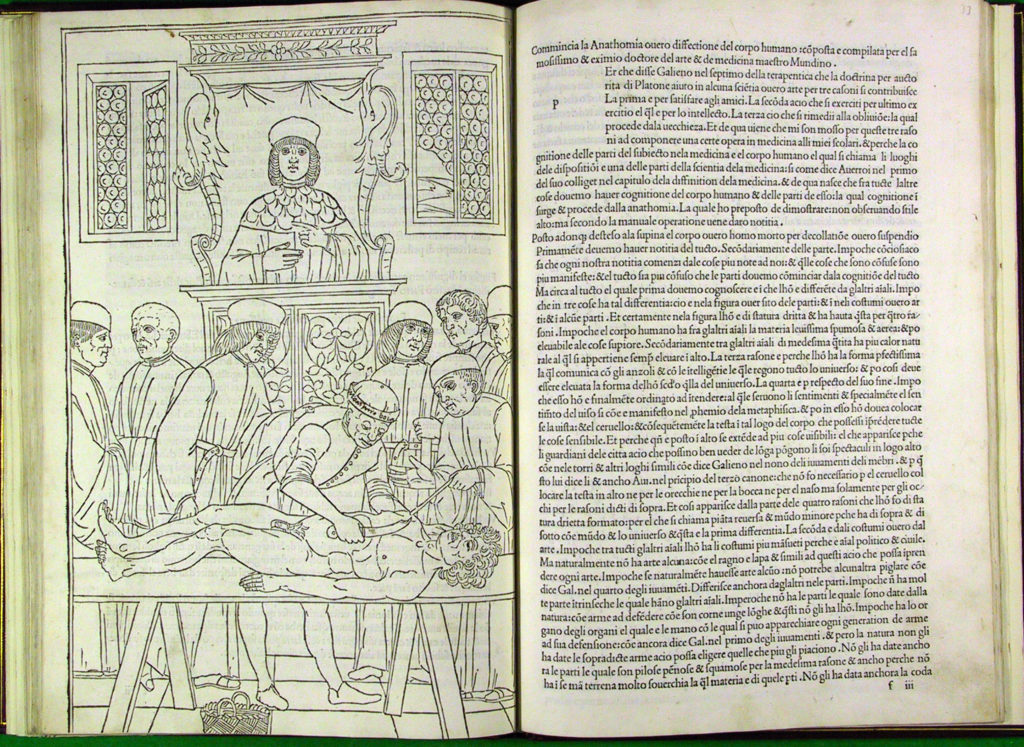 33
Commincia la Anathomia ouero dissectione del corpo humano cōposta e compilata per el fa
mosissimo & eximio doctor del arte & de medicina maestro Mundino .
Er che disse Galieno nel septimo della terapentica che la doctrina per aucto
P
rita di Platone aiuto in alcuna sciētia ouero arte per tre casoni si contribuisce
La prima e per satisfare agli amici. La secōda acio che si exerciti per ultimo ex
ercitio el q̄l e per lo intellecto. La terza cio che si rimedii alla obliuiōe: la qual
procede dala uecchieza. Et de qua uiene che mi son mosso per queste tre raso
ni ad componere una certe opera in medicina alli miei scolari. & perche la co
gnitione delle parti del subiecto nela medicina e el corpo humano el qual si chiama li luoghi
dele dispositiōi e una delle parti della scientia dela medicina: si come dice Auerroi nel primo
del suo colliget nel capitulo dela diffinition dela medicina. & de qua nasce che fra tucte laltre
cose douemo hauer cognitione del corpo humano & delle parti de esso: la qual cognitione i
surge & procede dalla anathomia. La quale ho preposto de dimostrare: non obseruando stile
alto: ma secondo la manuale operatione uene daro notitia .
Posto adonq; disteso ala supina el corpo ouero homo morto per decollatiōe ouero suspendio
Primamēte deuemo hauer notitia del tucto. Secōdariamente delle parte. Impoche cōciosiaco
sa che ogni nostra notitia comenzi dale cose piu note ad noi: & q̄lle cose che sono cōfuse sono
piu manifeste: & el tucto sia piu cōfuso che le parti douemo cominciar dala cognitiōe del tucto
Ma circa al tucto el quale prima douemo cognoscere ī che lhō e differēte da glaltri aīali. Impo
che in tre cose ha tal differentia: cio e nela figura ouer sito dele parti: & ī neli costumi ouero ar
ti: & ī alcūe parti. Et certamente nela figura lhō e di statura dritta & ha hauta q̄sta per q̄tro ra
soni. Impoche el corpo humano ha fra glaltri aīali la materia leuissima spumosa & aerea: & po
eleuabile ale cose supiore. Secōdariamēte tra glaltri aīali di medesima q̄tita ha piu calor natu
rale al q̄l si appertiene semp̄ eleuare ī alto. La terza rasone e perche lhō ha la forma pfectissima
la q̄l comunica cō gli anzoli & cō le intelligētie le q̄le regono tucto lo uniuerso: & po si deue
essere eleuata la forma delhō secd'o q̄lla del uniuerso. La quarta e p respecto del suo fine. Impo
che esso hō e finalmēte ordinato ad ītendere: al q̄le seruono li sentimenti & specialmēte el sen
timēto del uiso si cōe e manifesto nel phemio dela metaphisica. & po in esso hō douea colocar
se la uista: & el ceruello: & cōseq̄uētemēte la testa ī tal logo del corpo che possessi īprēdere tucte
le cose sensibile. Et perche q̄n e posto ī alto se extēde ad piu cose uisibili: el che apparisce pche
li guardiani dele citta acio che possino ben ueder de lōga pōgono li soi spectaculi in logo alto
cōe nele torri & altri loghi simili cōe dice Galieno nel nono deli iuuamenti deli mēbri . & p q̄
sto lui dice li & ancho Aui. nel pricipio del terzo canone: che nō fo necessario p el ceruello col
locare la testa in alto ne per le orecchie ne per la bocca ne per el naso ma solamente per gli oc-
chi per le rasoni dicti di sopra. Et cosi apparisce dalla parte dele quatro rasoni che lhō fo di sta
tura drietta formato: per el che si chiama piāta reuersa & mūdo minore pche ha di sopra & di
sotto cōe mūdo & lo uniuerso & q̄sta e la prima differentia. La secōda e dali costumi ouero dal
arte . Impoche tra tucti glaltri aīali lhō ha li costumi piu māsueti perche e aīal politico & ciuile.
Ma naturalmente nō ha arte alcuna: cōe el ragno e lapa & simili ad questi acio che possa īpren
dere ogni arte. Impoche se naturalmēte hauesse arte alcūo: nō potrebe alcunaltra piglare cōe
dice Gal. nel quarto degli iuuamēti. Differisce anchora daglaltri nele parti. Impoche n̄ ha mol
te parte ītrinseche le quale hāno glaltri aīali. Imperoche nō ha le parti le quale sono date dalla
natura: cōe arme ad defēdere cōe son corne unge lōghe & q̄sti nō gli ha lhō. Impoche ha lo or
gano degli organi el quale e le mano cō le qual si puo apparechiare ogni generation de arme
ad sua defensione: cōe ancora dice Gal. nel primo degli iuuamenti . & pero la natura non gli
ha date le sopradicte arme acio possa eligere quelle che piu gli piaciono . Nō gli ha date ancho
ra le parti le quale son pilose pēnose & squamose per la medesima rasone & ancho perche nō
ha ī se mā terrena molto souerchia la q̄l materia e di quele pti . Nō gli ha data anchora la coda
f iii